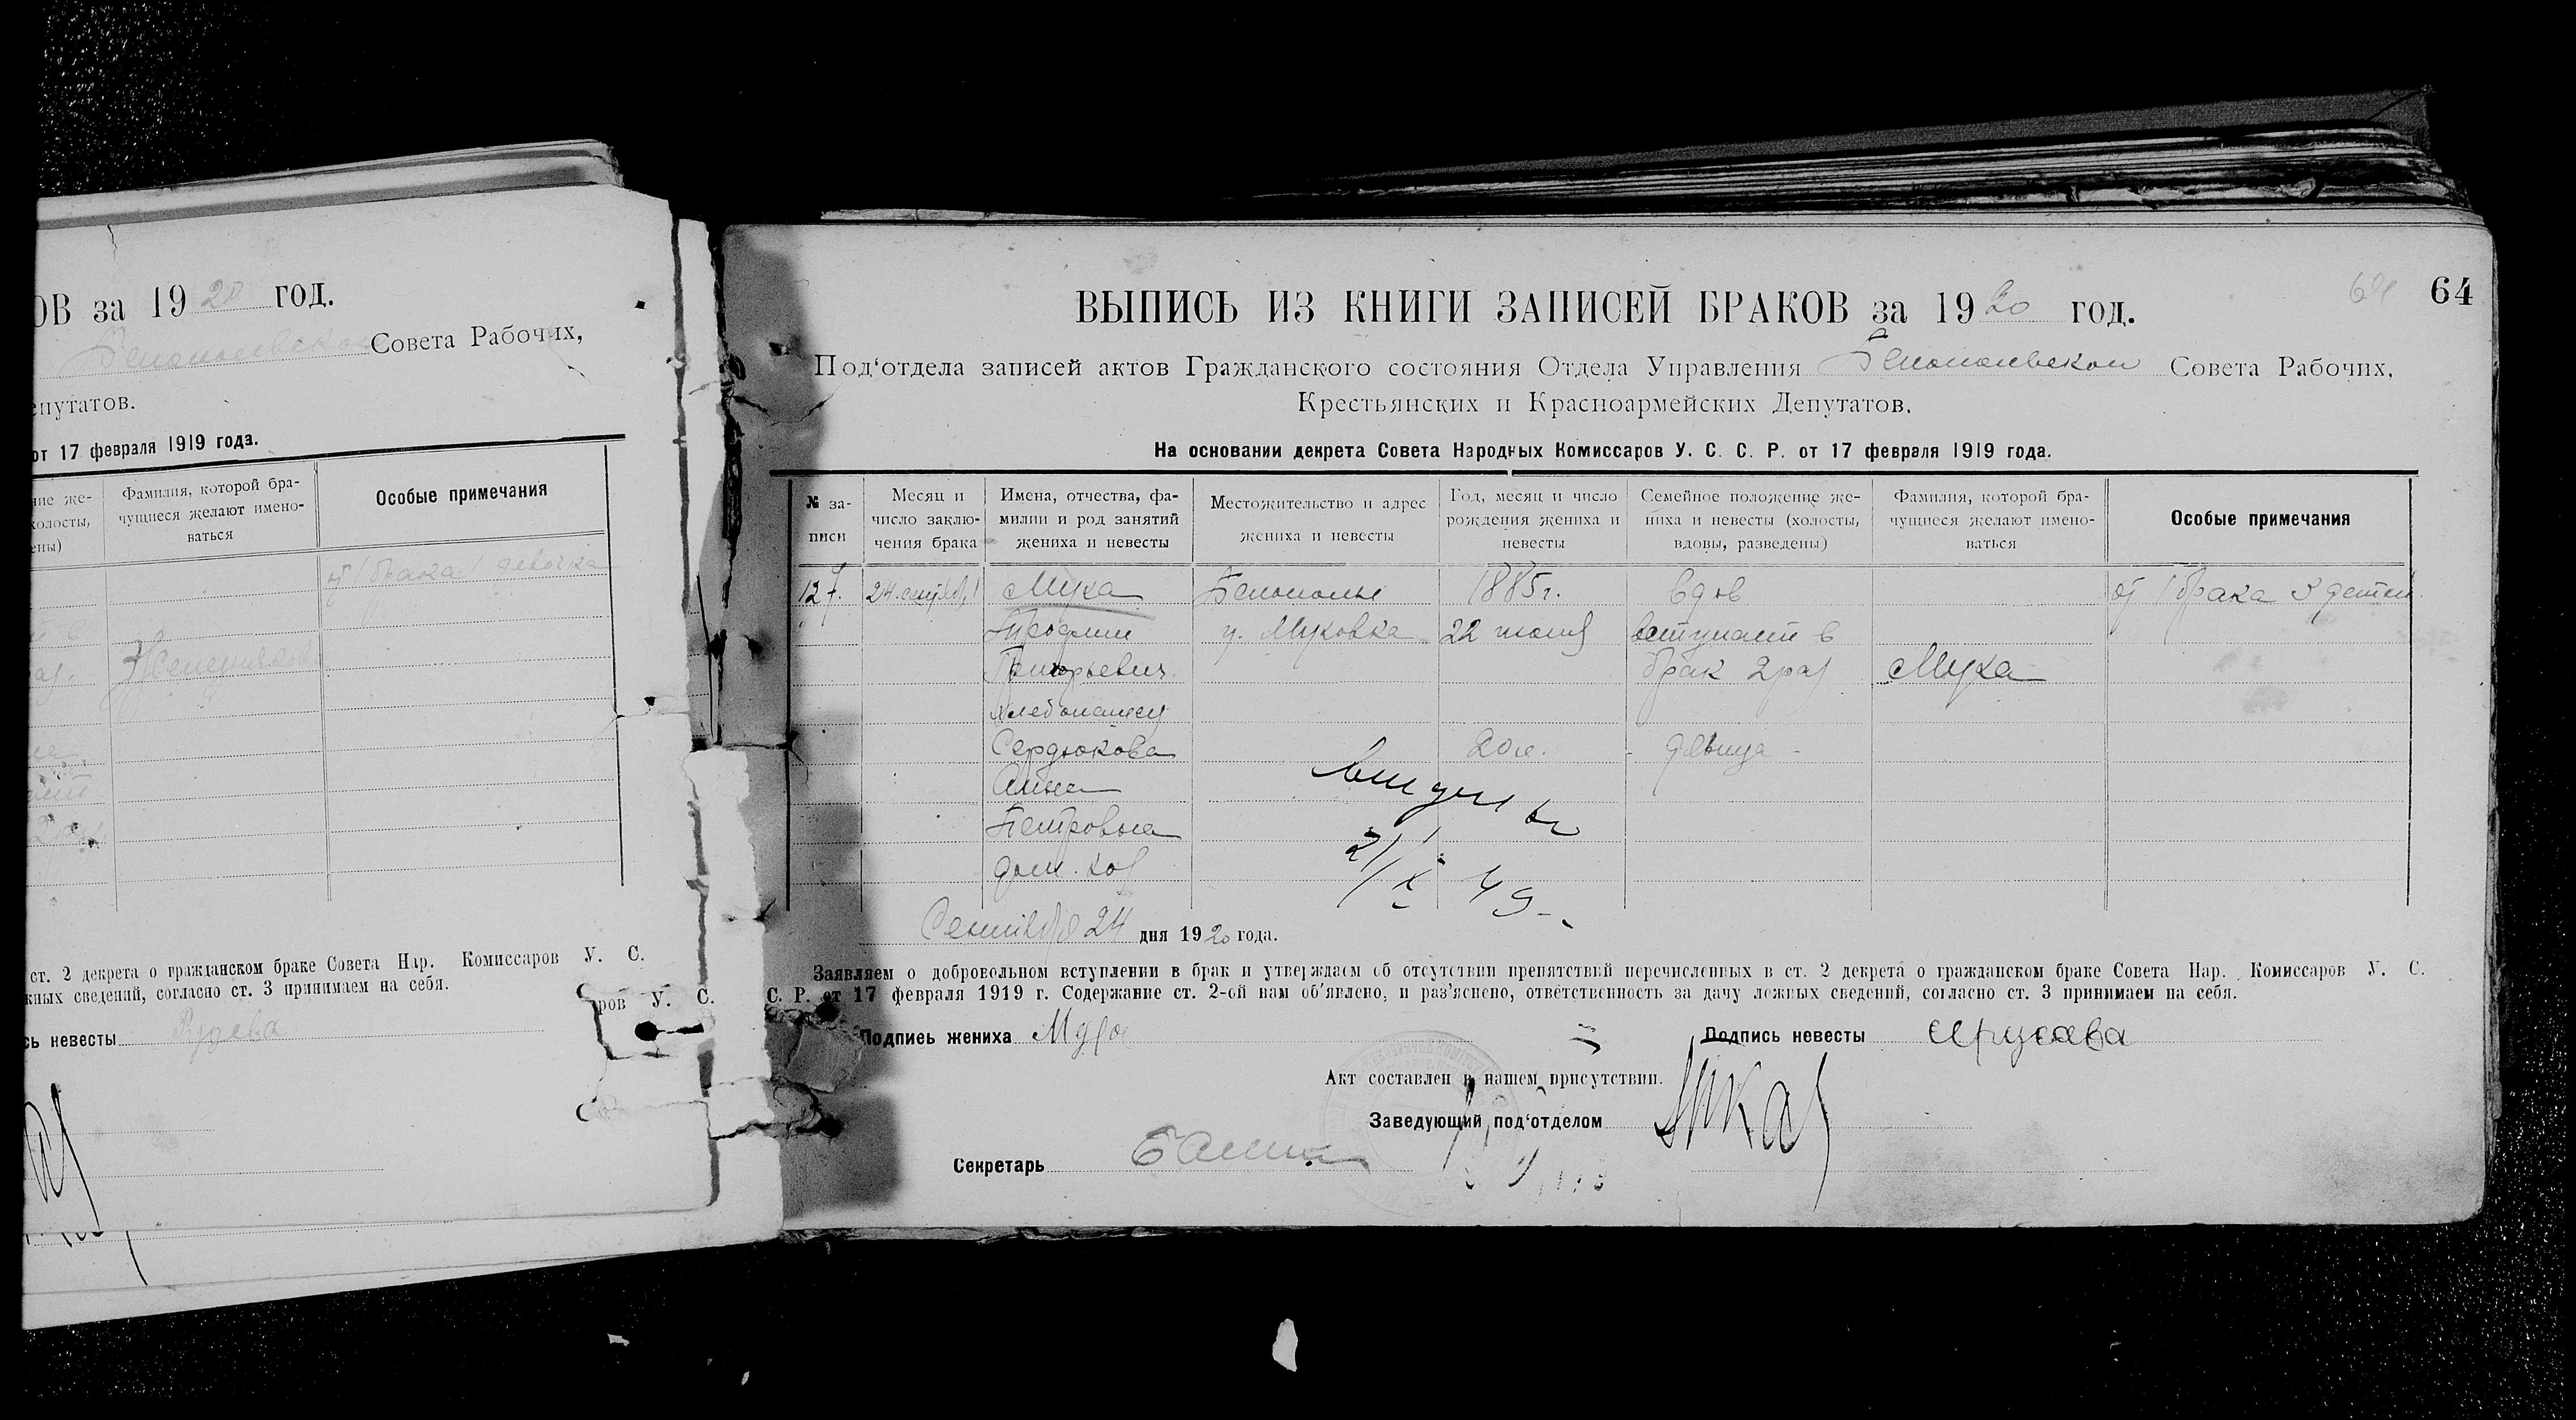 ОВ за 1920 год.
Совета Рабочих,
епутатов.
от 17 февраля 1919 года.
ние же-
холосты,
ены)
Фамилия, которой бра-
чущиеся желают имено-
ваться
Особые примечания
от 1 брака 1 девочка
ст. 2 декрета о гражданском браке Совета Нар. Комиссаров У. С.
жных сведений, согласно ст. 3 принимаем на себя.
ров У. С.
сь невесты
64 64
ВЫПИСЬ ИЗ КНИГИ ЗАПИСЕЙ БРАКОВ за 1920 год.
Под‘отдела записей актов Гражданского состояния Отдела Управления Белопольском Совета Рабочих,
Крестьянских и Красноармейских Депутатов.
На основании декрета Совета Народных Комиссаров У. С. С. Р. от 17 февраля 1919 года.
№ за-
писи
Месяц и
число заклю-
чения брака
Имена, отчества, фа-
милии и род занятий
жениха и невесты
Местожительство и адрес
жениха и невесты
Год, месяц и число
рождения жениха и
невесты
Семейное положение же-
ниха и невесты (холосты,
вдовы, разведены)
Фамилия, которой бра-
чущиеся желают имено-
ваться
Особые примечания
127. 24 сентября Муха Белополье 1885г. вдов от 1 брака 3 детей
у. Муховка 22 июня вступает в
Григорьевич брак 2 раз Муха
хлебопашец
Сердюкова 20 л. девица
Анна
Петровна
дом. хоз
21/X 49
Сентября 24 дня 1920 года.
Заявляем о добровольном вступлении в брак и утверждаем об отсутствии препятствий перечисленных в ст. 2 декрета о гражданском браке Совета Нар. Комиссаров У. С.
С. Р. от 17 февраля 1919 г. Содержание ст. 2-ой нам об‘явлено, и раз‘яснено, ответственность за дачу ложных сведений, согласно ст. 3 принимаем на себя.
Подпись жениха Подпись невесты
Акт составлен в нашем присутствии.
Заведующий под‘отделом
Секретарь